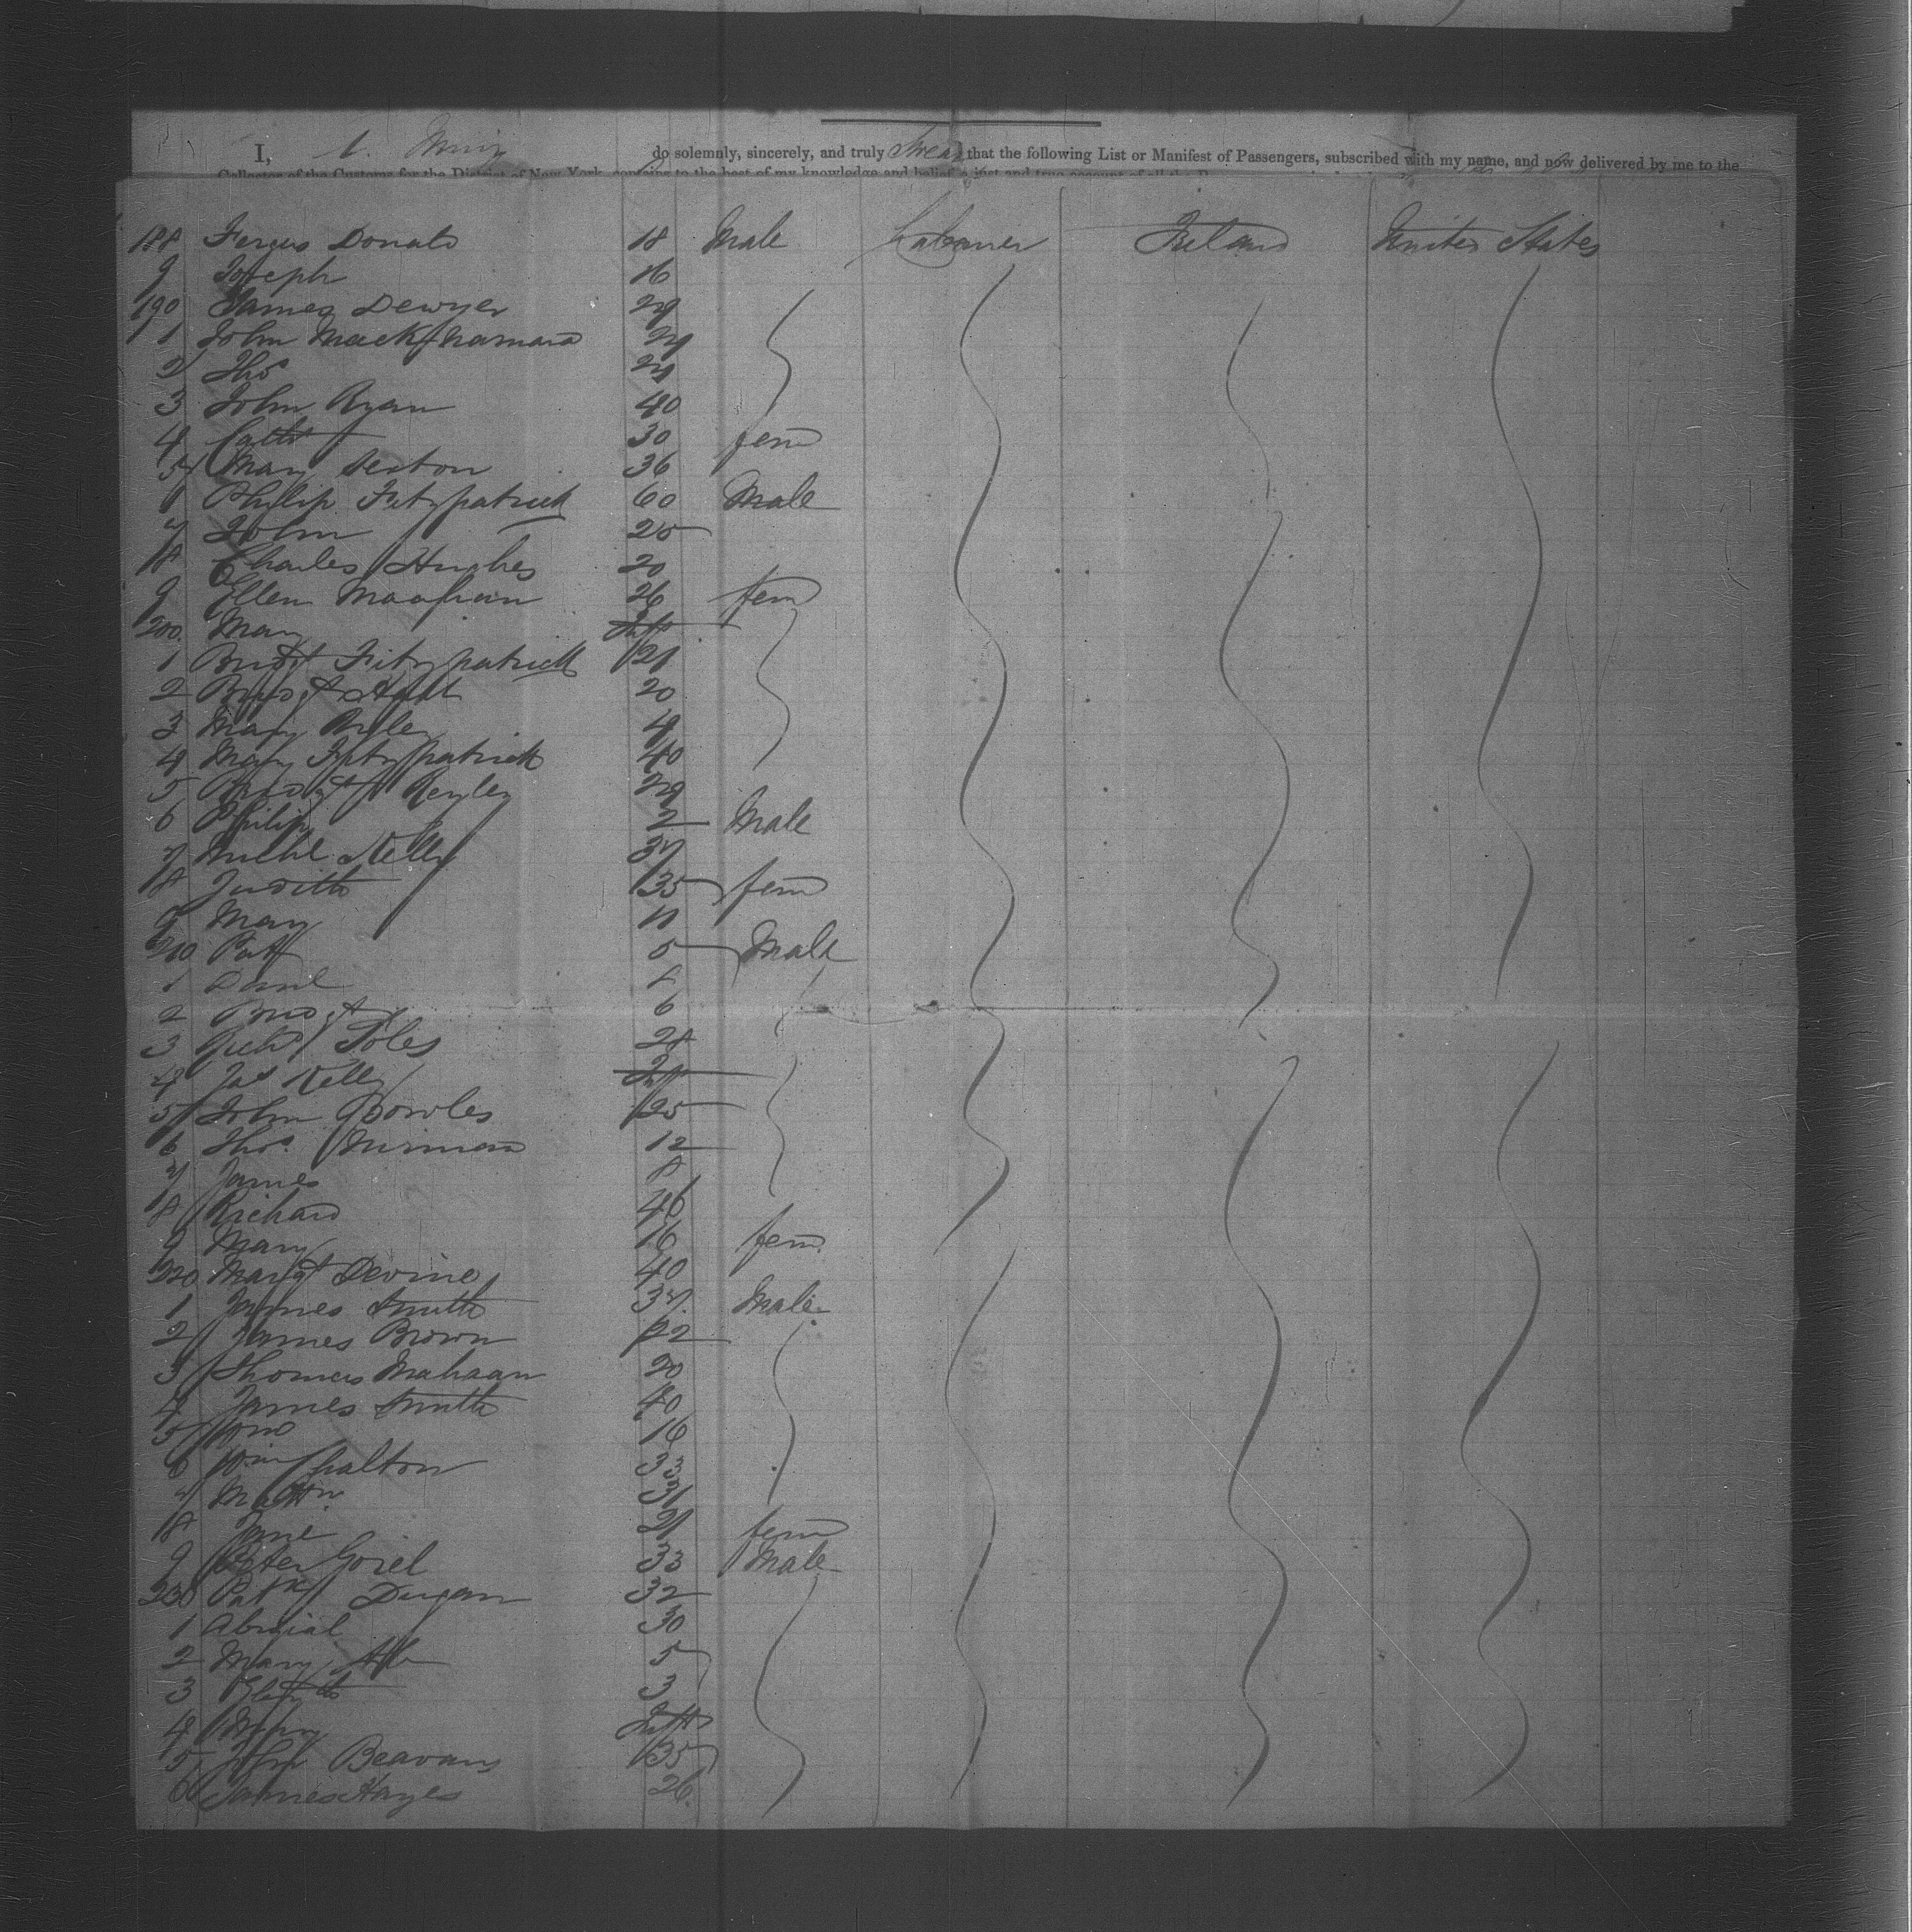 I, do solemnly, sincerely, and truly Swear that the following List or Manifest of Passengers, subscribed with my name, and now delivered by me to the
Collector of the Customs for the District of New York, contains to the best of my knowledge and belief a just and true account of all the
188 Fergus Donald 18 Male Labourer Ireland United States
9 Joseph 16
190 James Dewyer
1 John Mack Namara
2 Thos
3 John Ryan 40
4 Cath 30 fem
5 Mary Sexton 36
Philip Fitzpatrick 60 Male
7 John 25
8 Charles Hughes 20
9 Ellen 26 fem
200. Mary Inft
1 Bridgt Fitzpatrick 21
2 Bridgt 20
3 Mary
4 Mary Fitzpatrick 40
5 Bridgt Reyley
6 Philip 2 Male
7 Michl Kelly 37
8 Judith 35 fem
9 Mary 11
210 Pat 5 Male
1 Danl
2 Bridgt 6
3 Richd Toles 28
4 Jas Kelly Inft
5 John Bowles 25
6 Thos. 12
7 James 8
8 Richard 46
9 Mary 16 fem.
220 Margt Devine 40
1 James Smith 37. Male
2 James Brown 22
3 Thomas Mahaan 20
4 James Smith 40
5 16
6 Wm Chalton 33
7 31
8 Jane 21 fem
9 Peter Goriel 33 Male
230 Patk Dugan 32
1 Abigial 30
2 Mary 5
3 3
4 Mary Inft
5 John Beavans 35
6 James Hayes 26.